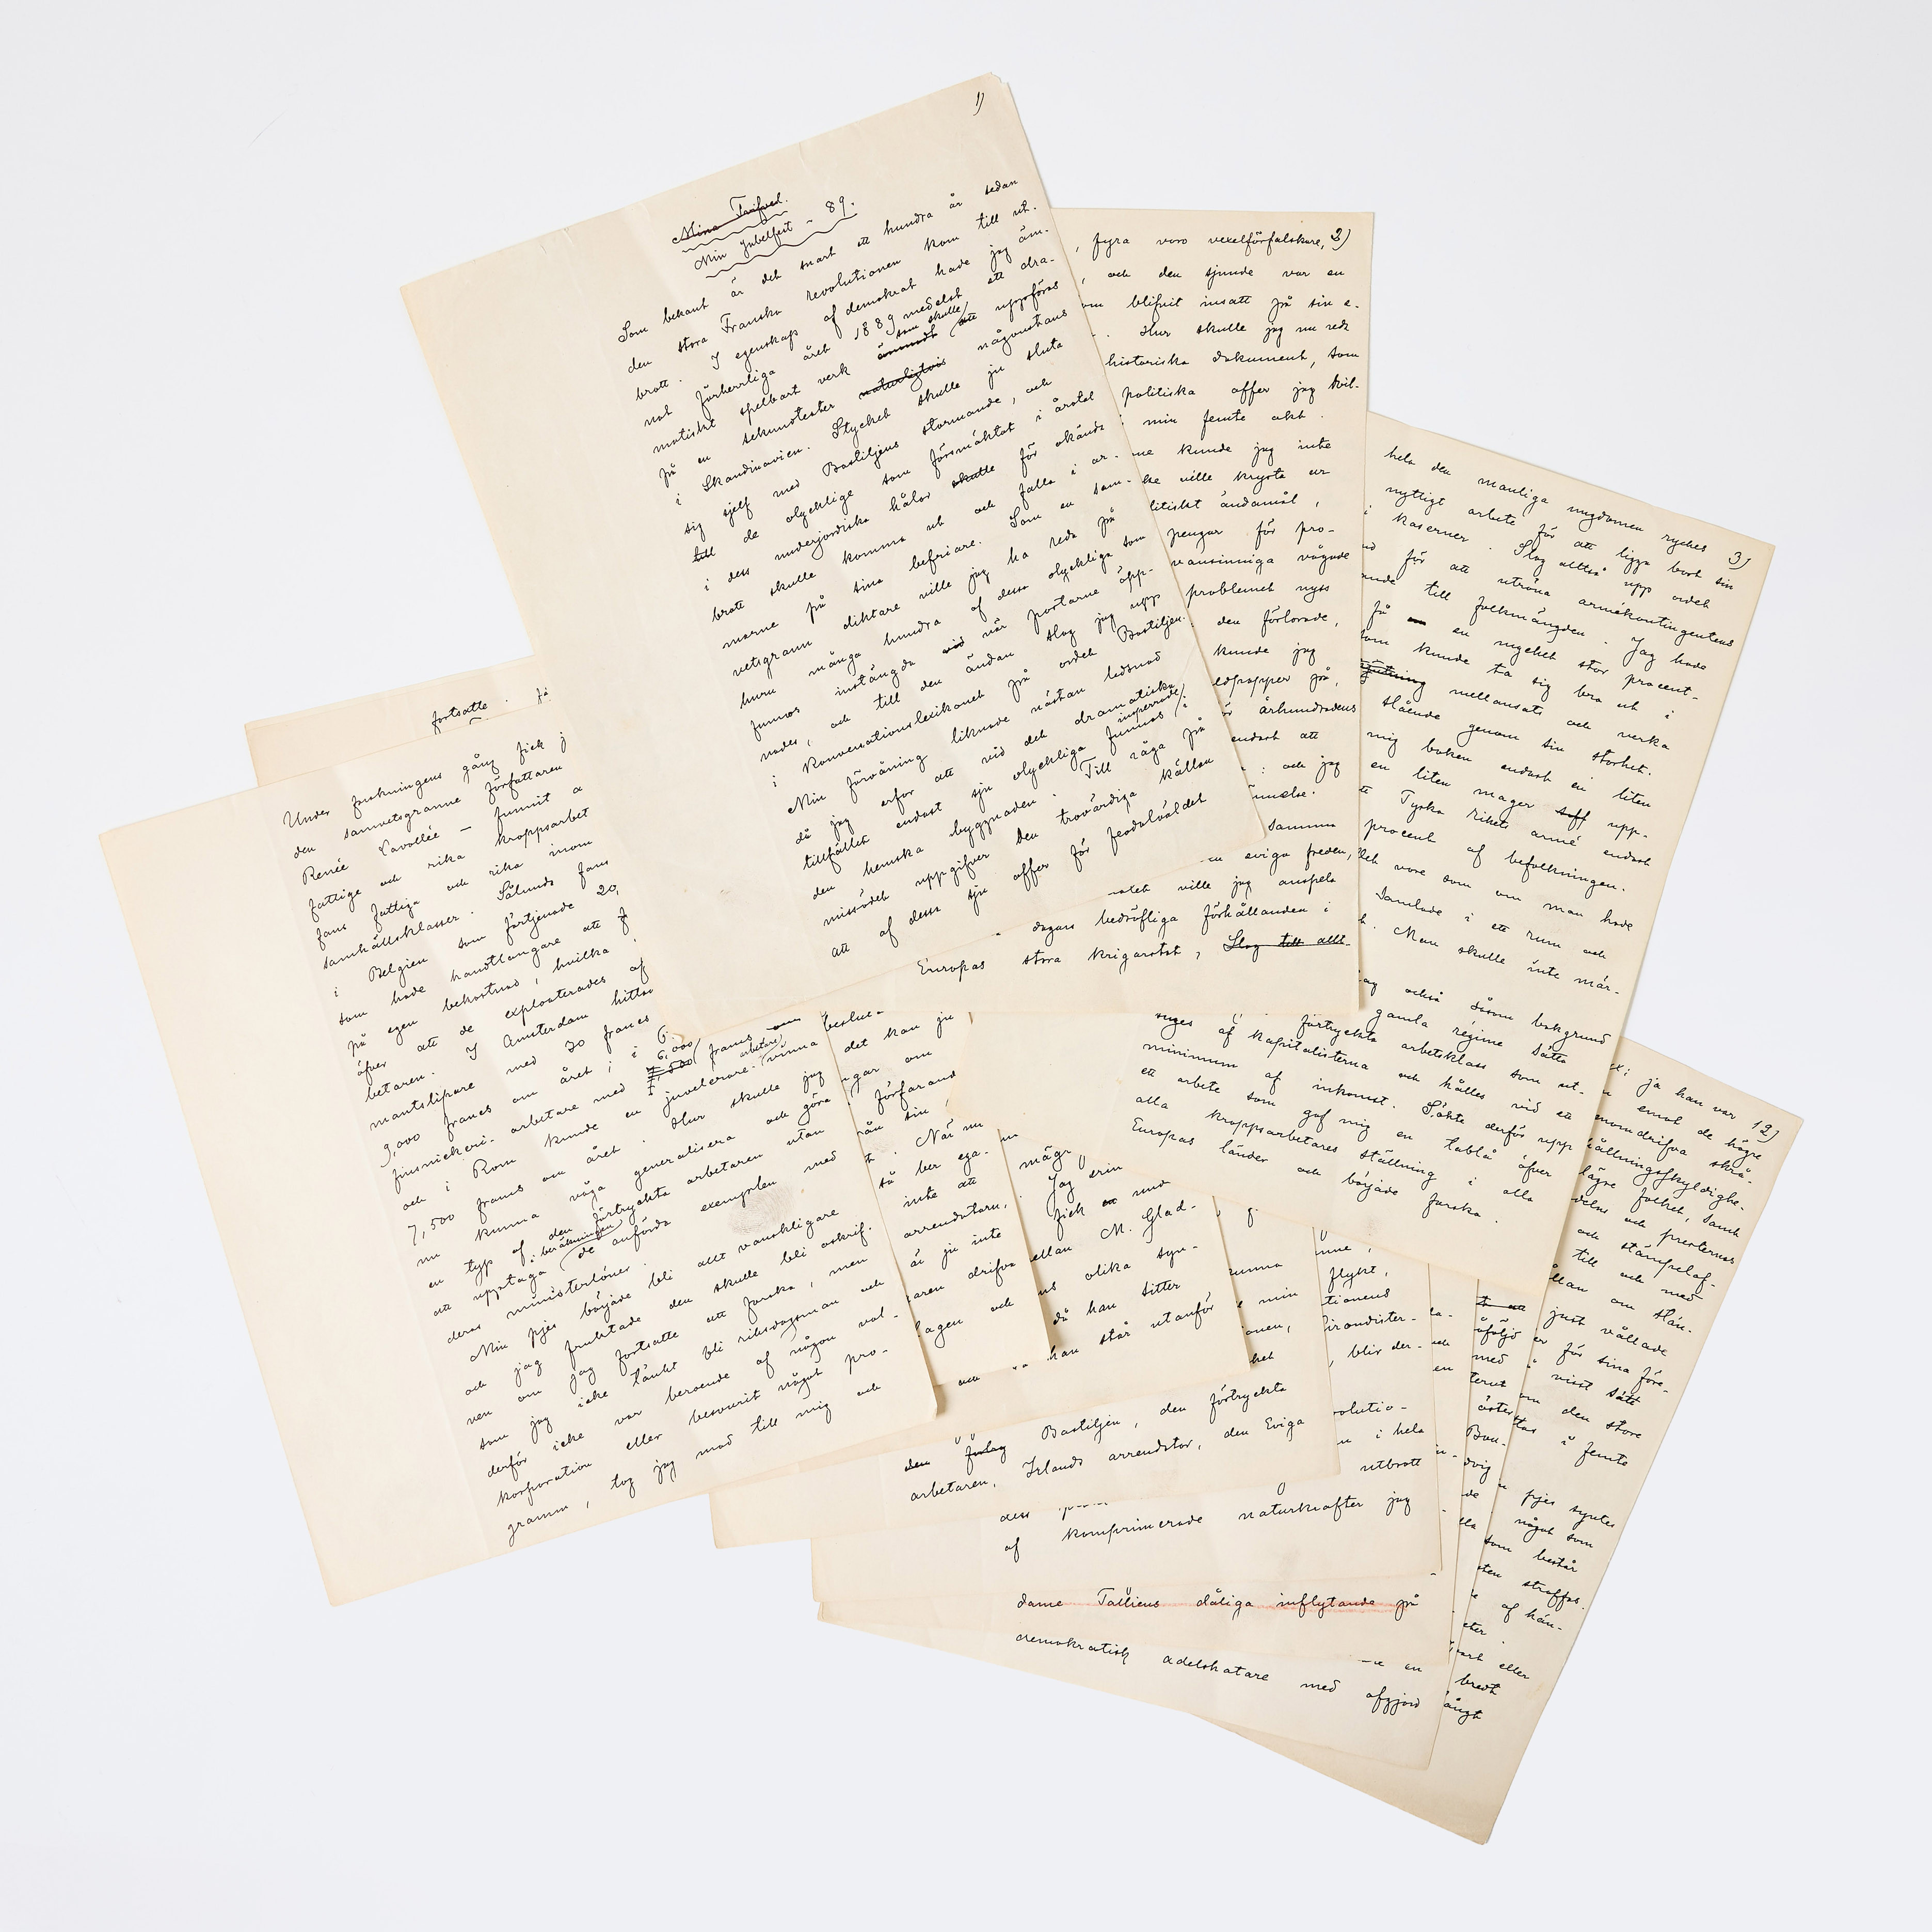 1)
Mina Trifvel.
Min Jubelfest - 89.
Som bekant är det snart ett hundra år sedan
den stora Franska revolutionen kom till ut-
brott. I egenskap af demokrat hade jag äm-
nat förherrliga året 1889 medelst ett dra-
matiskt spelbart verk ämnadt som skulle att uppföras
på en sekundteater naturligtvis någonstans
i Skandinavien. Stycket skulle ju sluta
sig sjelf med Bastiljens stormande, och
till de olycklige som försmäktat i årtal
i dess underjordiska hålor skulle för okända
brott skulle komma ut och falla i ar-
marne på sina befriare. Som en sam-
vetsgrann diktare ville jag ha reda på
huru många hundra af dessa olyckliga som
funnos instängda vid när portarne öpp-
nades, och till den ändan slog jag upp
i Konversationslexikonet på ordet Bastiljen.
Min förvåning liknade nästan ledsnad
då jag erfor att vid det dramatiska
tillfället endast sju olyckliga funnos inspärrade i
den hemska byggnaden. Till råga på
missödet uppgifver den trovärdiga källan
att af dessa sju offer för feodalväldet
2)
, fyra voro vexelförfalskare,
, och den sjunde var en
om blifvit insatt på sin e-
. Hur skulle jag nu reda
historiska dokument, som
politiska offer jag skil-
i min femte akt.
ne kunde jag inte
lse ville krysta ur
litiskt ändamål,
pengar för pro-
vansinniga vågade
problemet nyss
den förlorade,
kunde jag
edspapper på,
s århundradens
endast att
: och jag
nnelse.
samma
en eviga freden,
ville jag anspela
dagars bedröfliga förhållanden i
Europas stora krigarstat, Slog till allt-
3)
hela den manliga ungdomen ryckes
nyttigt arbete för att ligga bort sin
i Kaserner. Slog alltså upp ordet
för att utröna armékontingentens
ande till folkmängden. Jag hade
få en mycket stor procent-
som kunde ta sig bra ut i
mellansats och verka
slående genom sin storhet.
mig boken endast en liten
en liten mager soff upp-
tt Tyska rikets armé endast
procent af befolkningen.
let vore som om man hade
samlade i ett rum och
. Man skulle inte mär-
ag också såsom bakgrund
gamla régime sätta
förtryckta arbetsklass som ut-
suges af Kapitalisterna och hålles vid ett
minimum af inkomst. Sökte derför upp
ett arbete som gaf mig en tablå öfver
alla kroppsarbetares ställning i alla
Europas länder och började forska.
fortsatte. få
Under forskningens gång fick j
den samvetsgranne författaren
Renée Lavollée — funnit a
fattige och rika kroppsarbet
fans fattiga och rika inom
samhällsklasser. Sålunda fans
i Belgien som förtjenade 20,
som hade handtlangare att f
på egen bekostnad, hvilka
öfver att de exploaterades af
betaren. I Amsterdam hittar
mantslipare med 30 francs
9,000 francs om året; i
finsnickeri-arbetare med 7,500 6,000 francs om
och i Rom kunde en juvelerare-arbetare vinna
7,500 francs om året. Hur skulle jag
nu kunna våga generalisera och göra
en typ af den förtryckta arbetaren utan
att upptaga i beräkningen de anförda exemplen med
deras ministerlöner.
Min pjes började bli allt vanskligare
och jag fruktade den skulle bli oskrif-
ven om jag fortsatte att forska, men
som jag icke tänkt bli riksdagsman och
derför icke var beroende af någon val-
korporation eller besvurit något pro-
gram, tog jag mod till mig och
beslut
det kan ju
ngar om
förfarand
rån sin
. När nu
så ber ega-
inte att
arrendatorn,
är ju inte
aren drifva
lagen och
mågn
. Jag erin
fick en und
ellan M. Glad-
us olika syn-
då han sitter
han står utanför
den förlag Bastiljen, den förtryckta
arbetaren, Irlands arrendator, den Eviga
unna
min
ionen,
het
nne,
flykt,
tionens
Girondister-
, blir der-
olutio-
i hela
utbrott
af komprimerade naturkrafter jag
dame Talliens dåliga inflytande på
demokratisk adelshatare med afgjord
12)
x: ja han var
emot de högre
enomdrifva skrå-
hållningsskyldighe-
lägre folket, samt
delns och presternas
och stämpelaf-
till och med
llan om stån-
just vållade
er för sina före-
visst sätt
om den store
ttas i femte
pjes syntes
något som
som består
sten straffas.
af hän-
eter.
vart eller
bredt
långt